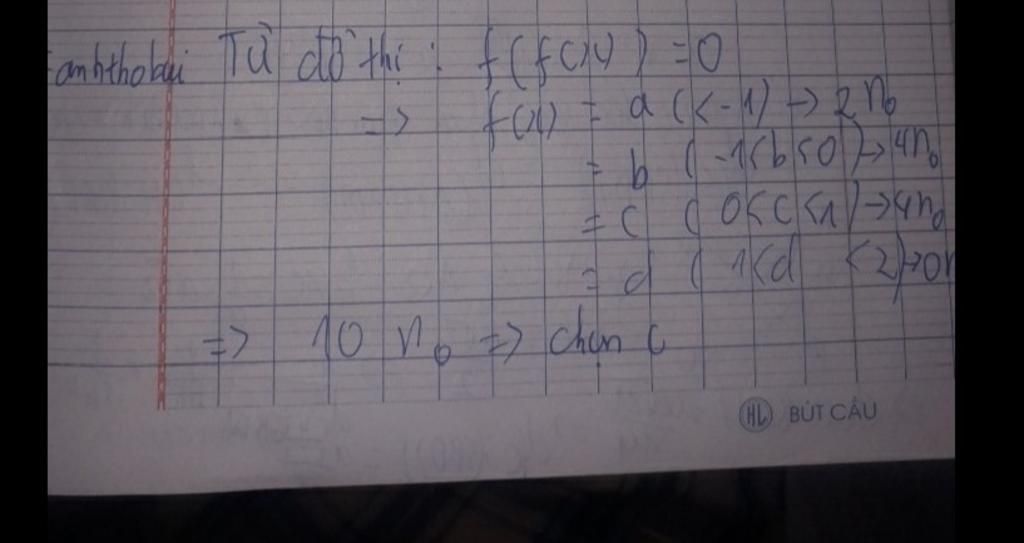 anhthobui Từ đồ thị : f(f(x)) = 0
=> f(x) = a (< -1) → 2 n₀
= b ( -1<b<0) → 4n₀
= c ( 0<c<1) → 4n₀
= d ( 1<d <2) → 0n
=> 10 n₀ => chọn C
HL BÚT CẦU